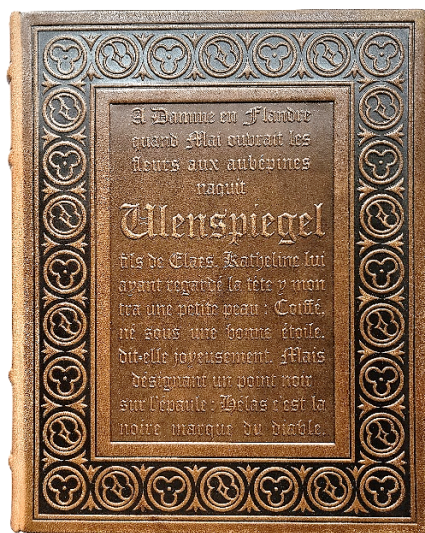 A Damme en Flandre
quand Mai ouvrait les
fleurs aux aubépines
naquit
Ulenspiegel
fils de Claes. Katheline lui
ayant regardé la tete y mon
tra une petite peau : Coiffé,
né sous une bonne étoile.
dit-elle joyeusement. Mais
désignant un point noir
sur l'épaule : Hélas c'est la
noire marque du diable.